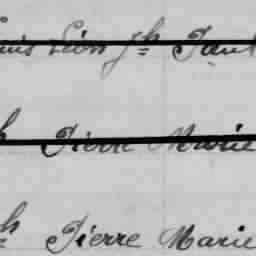 Léon Jh Paul
h Pierre Marie
h Pierre Marie